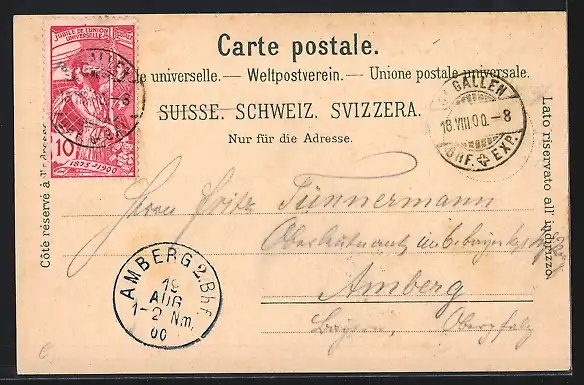 JUBILÉ DE L'UNION
UNIVERSELLE POSTALE
10
1875-1900
GALLEN
Carte postale.
de universelle. — Weltpostverein. — Unione postale universale.
SUISSE. SCHWEIZ. SVIZZERA.
Nur für die Adresse.
Côté réservé à l'adresse.
Lato riservato all' indirizzo.
GALLEN
18.VIII.00.-8
BHF. EXP.
Herrn Fritz Tünnermann
Oberleutnant im 6. bayr.
Amberg
Bayern, Oberpfalz
AMBERG 2. Bhf.
19
AUG
1-2 Nm.
00